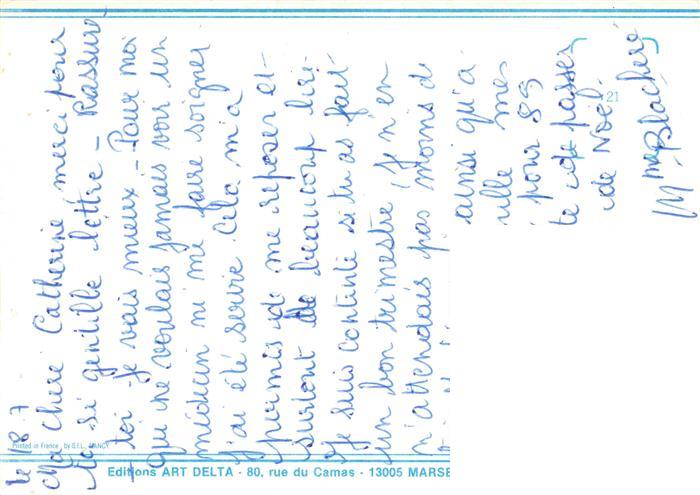 le 18.7
Ma chère Catherine, merci pour
ta si gentille lettre - Rassure
toi - Je vais mieux. - Pour moi
qui ne voulais jamais voir un
médecin ni me faire soigner
j'ai été servie. Cela m'a
permis de me reposer et
surtout de beaucoup lire
Je suis contente si tu as fait
un bon trimestre, je n'en
n'attendais pas moins d
ainsi qu'à
ille mes
pour 89
te de passer
de Noël.
M me Blachère
21
Printed in France, by S.I.L. NANCY
Editions ART DELTA - 80, rue du Camas - 13005 MARSE